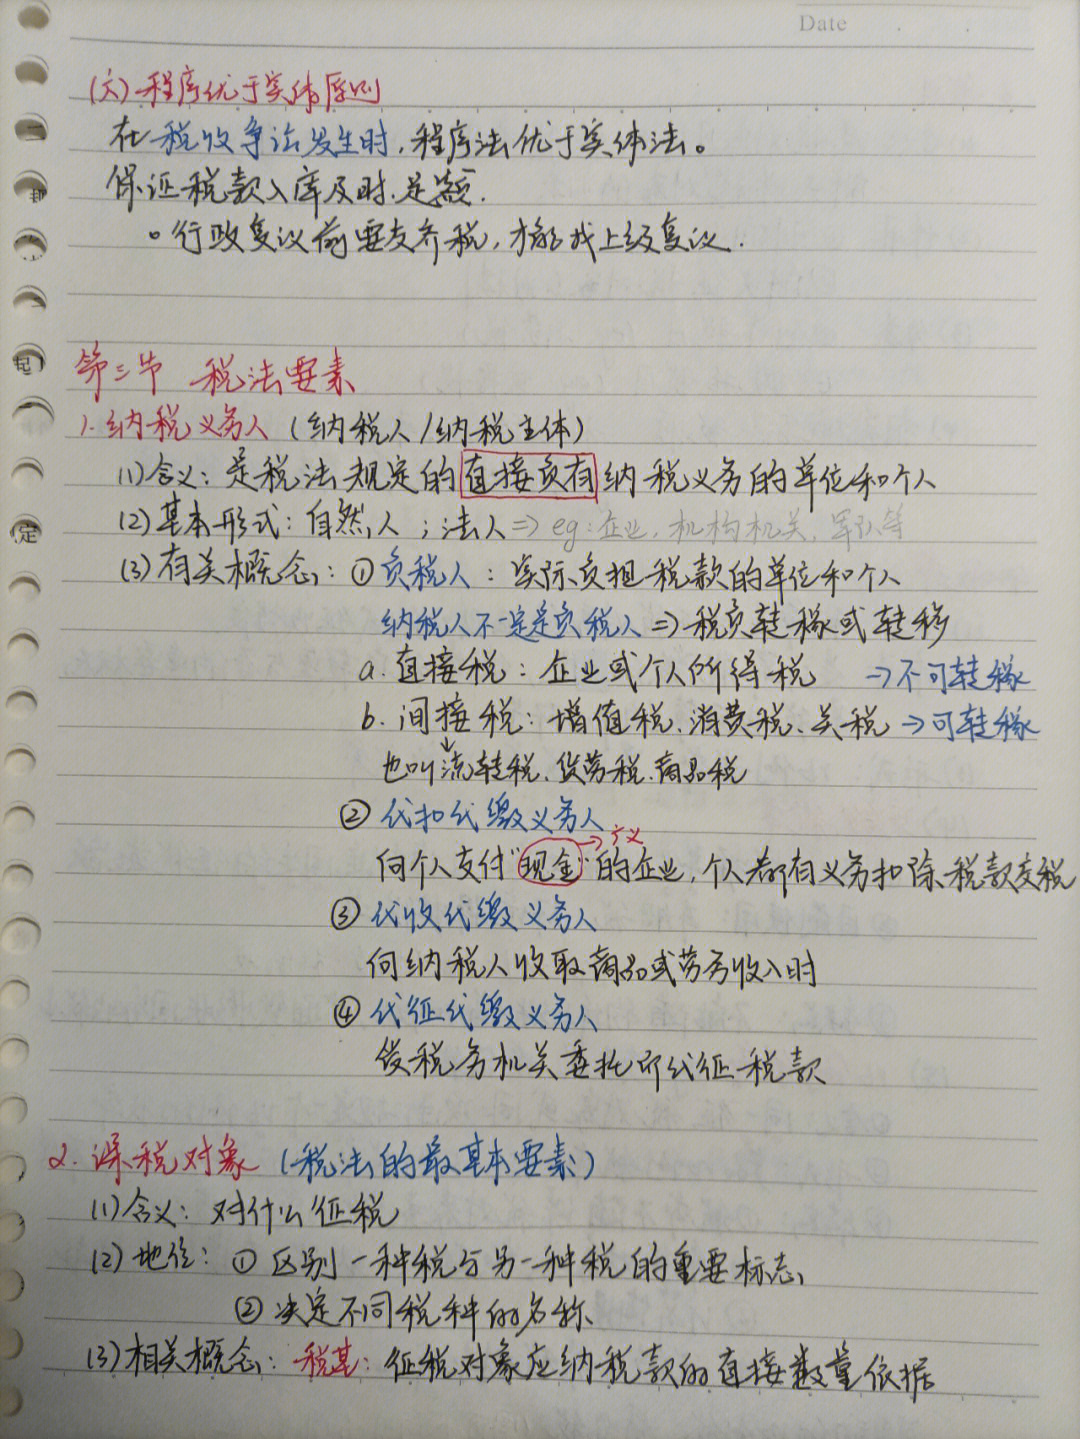 Date
(六)程序优于实体原则
在税收争讼发生时,程序法优于实体法。
保证税款入库及时.足额.
。行政复议前要支齐税,才能找上级复议.
第三节 税法要素
1.纳税义务人(纳税人/纳税主体)
(1)含义:是税法规定的直接负有纳税义务的单位和个人
(2)基本形式:自然人;法人⇒eg:企业,机构机关,军队等
(3)有关概念:①负税人:实际负担税款的单位和个人
纳税人不一定是负税人⇒税负转嫁或转移
a.直接税:企业或个人所得税 →不可转嫁
b.间接税:增值税、消费税、关税→可转嫁
也叫流转税、货劳税、商品税
②代扣代缴义务人
向个人支付"现金"→广义的企业,个人都有义务扣除税款交税
③代收代缴义务人
向纳税人收取商品或劳务收入时
④代征代缴义务人
受税务机关委托所代征税款
2.课税对象(税法的最基本要素)
(1)含义:对什么征税
(2)地位:①区别一种税与另一种税的重要标志,
②决定不同税种的名称
(3)相关概念:税基:征税对象应纳税款的直接数量依据
起
定